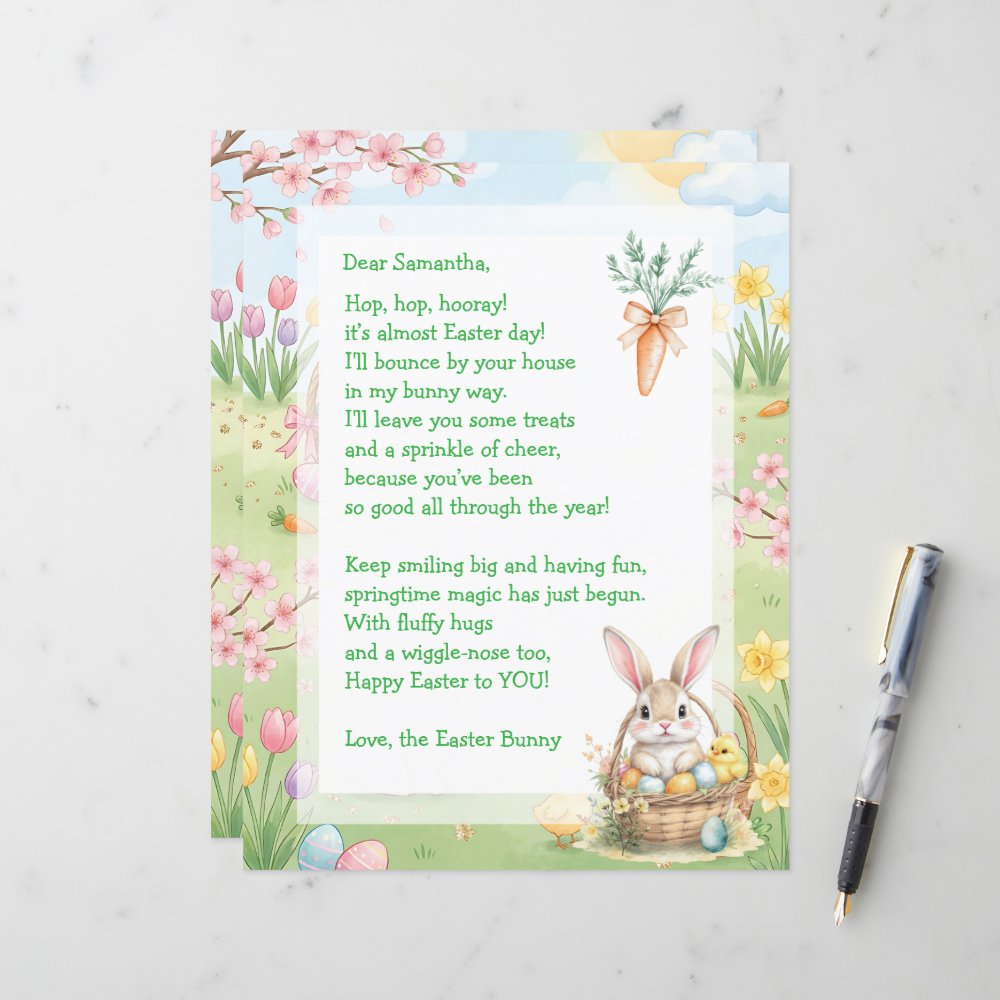 Dear Samantha,
Hop, hop, hooray!
it's almost Easter day!
I'll bounce by your house
in my bunny way.
I'll leave you some treats
and a sprinkle of cheer,
because you've been
so good all through the year!
Keep smiling big and having fun,
springtime magic has just begun.
With fluffy hugs
and a wiggle-nose too,
Happy Easter to YOU!
Love, the Easter Bunny